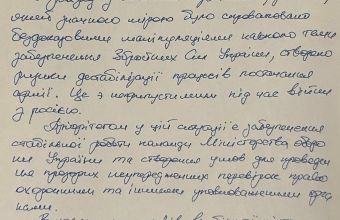 якої значною мірою було спровоковано
бездоказовими маніпуляціями навколо теми
забезпечення Збройних Сил України, створено
ризики дестабілізації процесів постачання
армії. Це є неприпустимим під час війни
з росією.
Пріоритетом у цій ситуації є забезпечення
стабільної роботи команди Міністерства оборо
ни України та створення умов для проведен
ня прозорих неупереджених перевірок право
охоронними та іншими уповноваженими орга
нами.